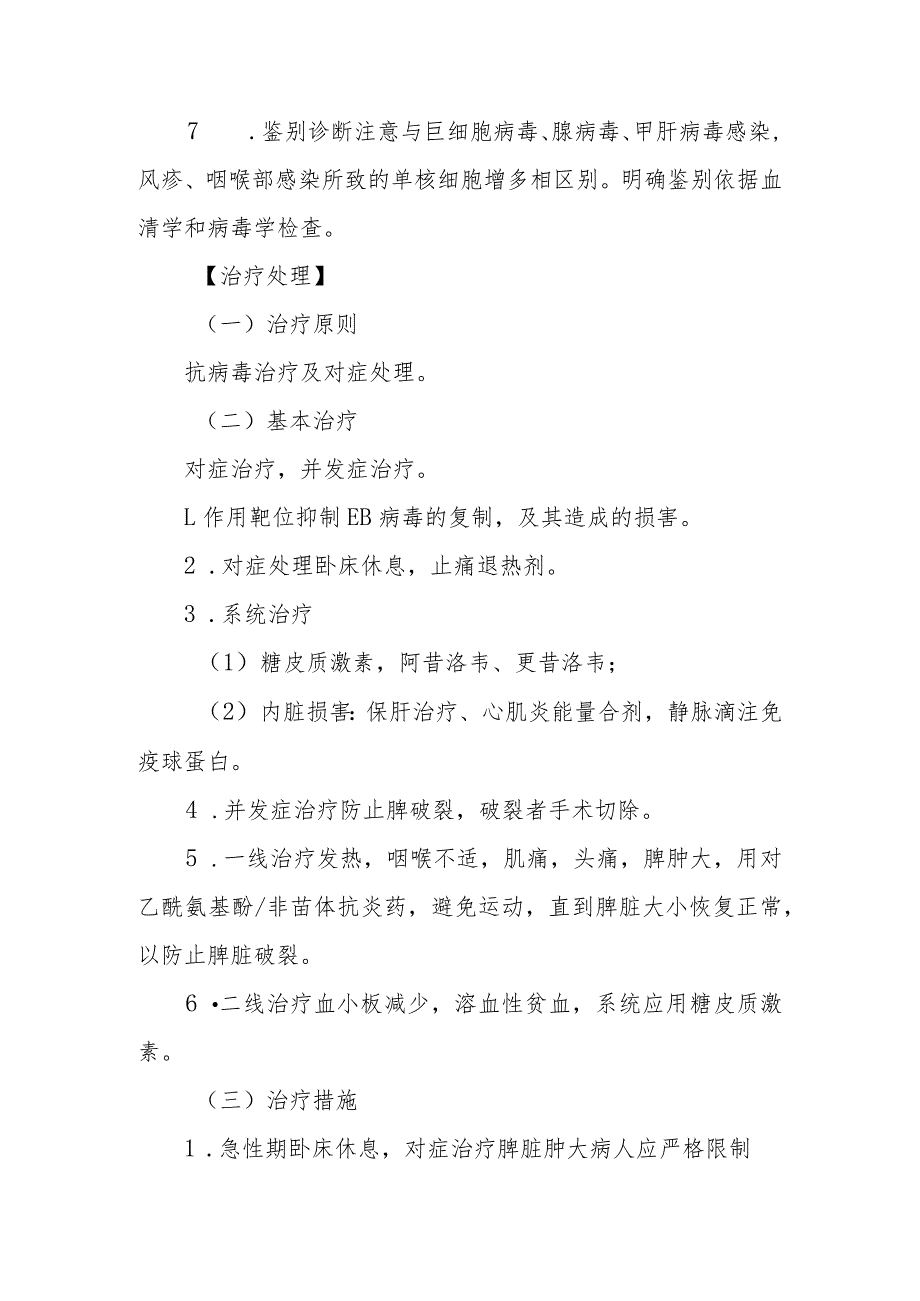 7 .鉴别诊断注意与巨细胞病毒、腺病毒、甲肝病毒感染，
风疹、咽喉部感染所致的单核细胞增多相区别。明确鉴别依据血
清学和病毒学检查。
【治疗处理】
（一）治疗原则
抗病毒治疗及对症处理。
（二）基本治疗
对症治疗，并发症治疗。
L作用靶位抑制EB病毒的复制，及其造成的损害。
2 .对症处理卧床休息，止痛退热剂。
3 .系统治疗
（1）糖皮质激素，阿昔洛韦、更昔洛韦；
（2）内脏损害：保肝治疗、心肌炎能量合剂，静脉滴注免
疫球蛋白。
4 .并发症治疗防止脾破裂，破裂者手术切除。
5 .一线治疗发热，咽喉不适，肌痛，头痛，脾肿大，用对
乙酰氨基酚/非苗体抗炎药，避免运动，直到脾脏大小恢复正常，
以防止脾脏破裂。
6 •二线治疗血小板减少，溶血性贫血，系统应用糖皮质激
素。
（三）治疗措施
1 .急性期卧床休息，对症治疗脾脏肿大病人应严格限制